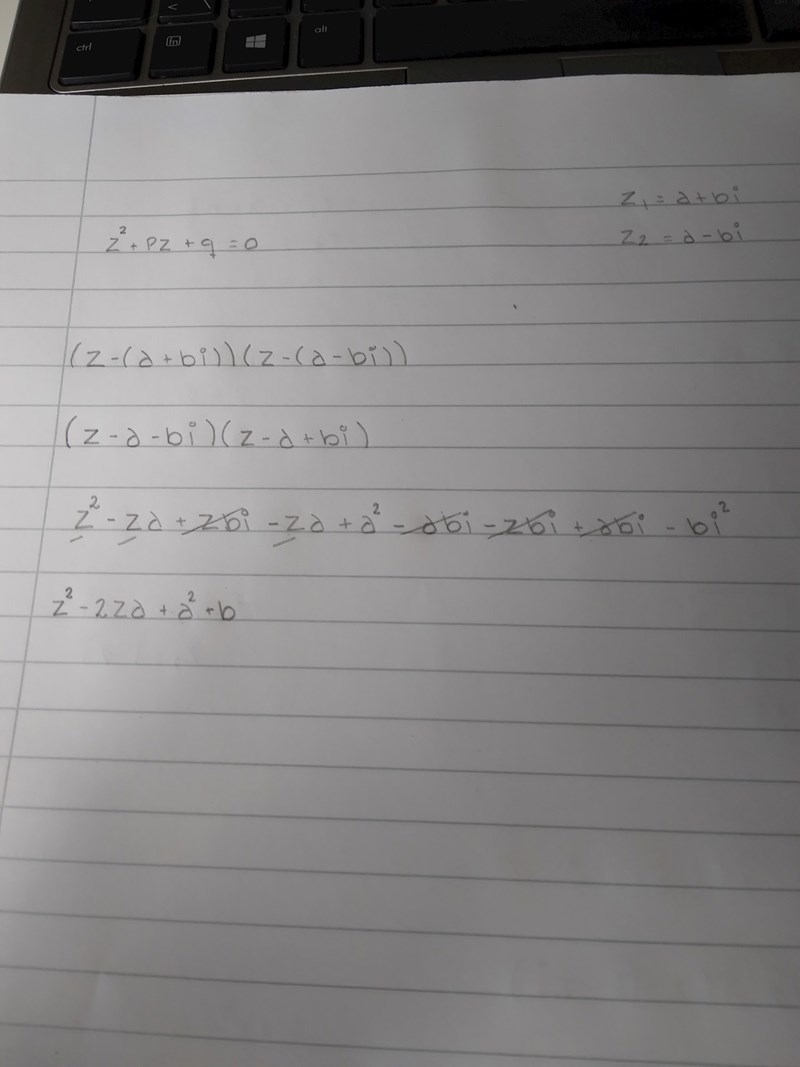 ctrl
fn
alt
<
\
z₁ = a + bi
z² + pz + q = 0
z₂ = a - bi
(z - (a + bi))(z - (a - bi))
(z - a - bi)(z - a + bi)
z² - za + zbi - za + a² - abi - zbi + abi - bi²
z² - 2za + a² + b